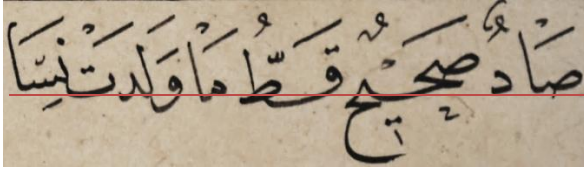 صَادٌ صَحِيْحٌ قَطُّ مَا وَلَدَتْ نِسَا